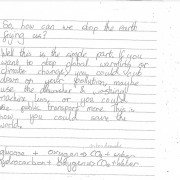 So, how can we stop the earth
frying us?
Well this is the simple part. If you
want to stop global warming or
climate change, you could cut
down on your pollution, maybe
use the dishwasher & washing
machine less, or you could
use public transport more. This is
how you could save the
world.
glucose + oxygen → CO₂ + water
hydrocarbon + oxygen → CO₂ + water